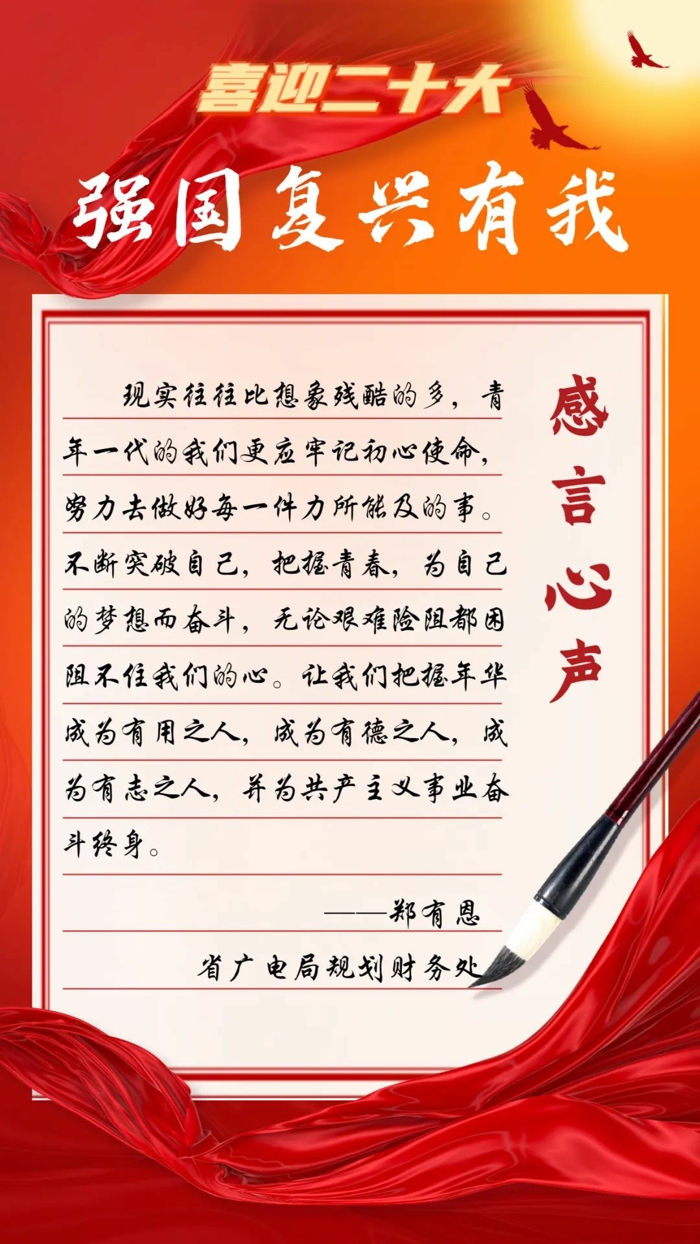 喜迎二十大
强国复兴有我
感言心声
现实往往比想象残酷的多，青
年一代的我们更应牢记初心使命，
努力去做好每一件力所能及的事。
不断突破自己，把握青春，为自己
的梦想而奋斗，无论艰难险阻都困
阻不住我们的心。让我们把握年华
成为有用之人，成为有德之人，成
为有志之人，并为共产主义事业奋
斗终身。
——郑有恩
省广电局规划财务处